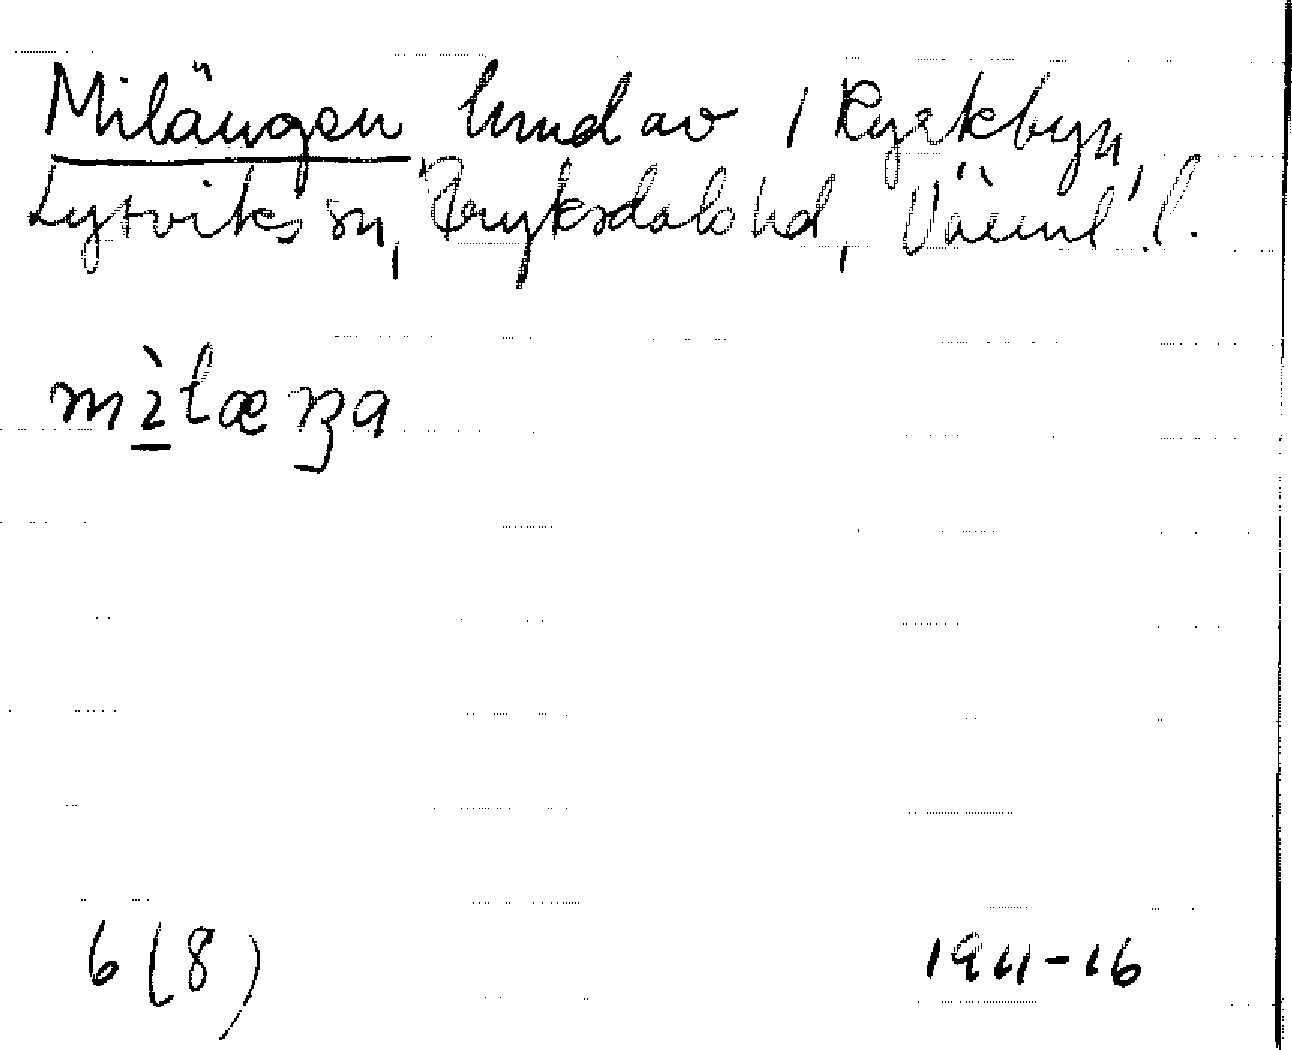 Milängen hmd av 1 Ryskbyn,
Lysviks sn, Fryksdals hd, Värml. l.
mìlæŋa
6 (8) 1911-16